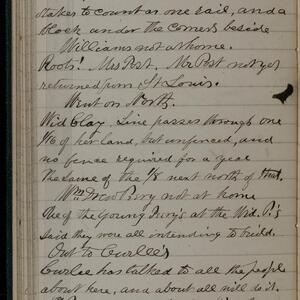 stakes to count as one rail, and a
block under the corners beside
Williams not at home.
Roots! Mrs Post. Mr Post not yet
returned from St Louis.
Went on North.
Wid Clay. Line passes through one
1/16 of her land, but unfenced, and
no fence required for a year
The same of the 1/8 next north of that.
Wm Drew Perry not at home
One of the Young Perry's at the Wid. P's
said they were all intending to build.
Out to Curlee's
Curlee has talked to all the people
about here, and about all will do it.